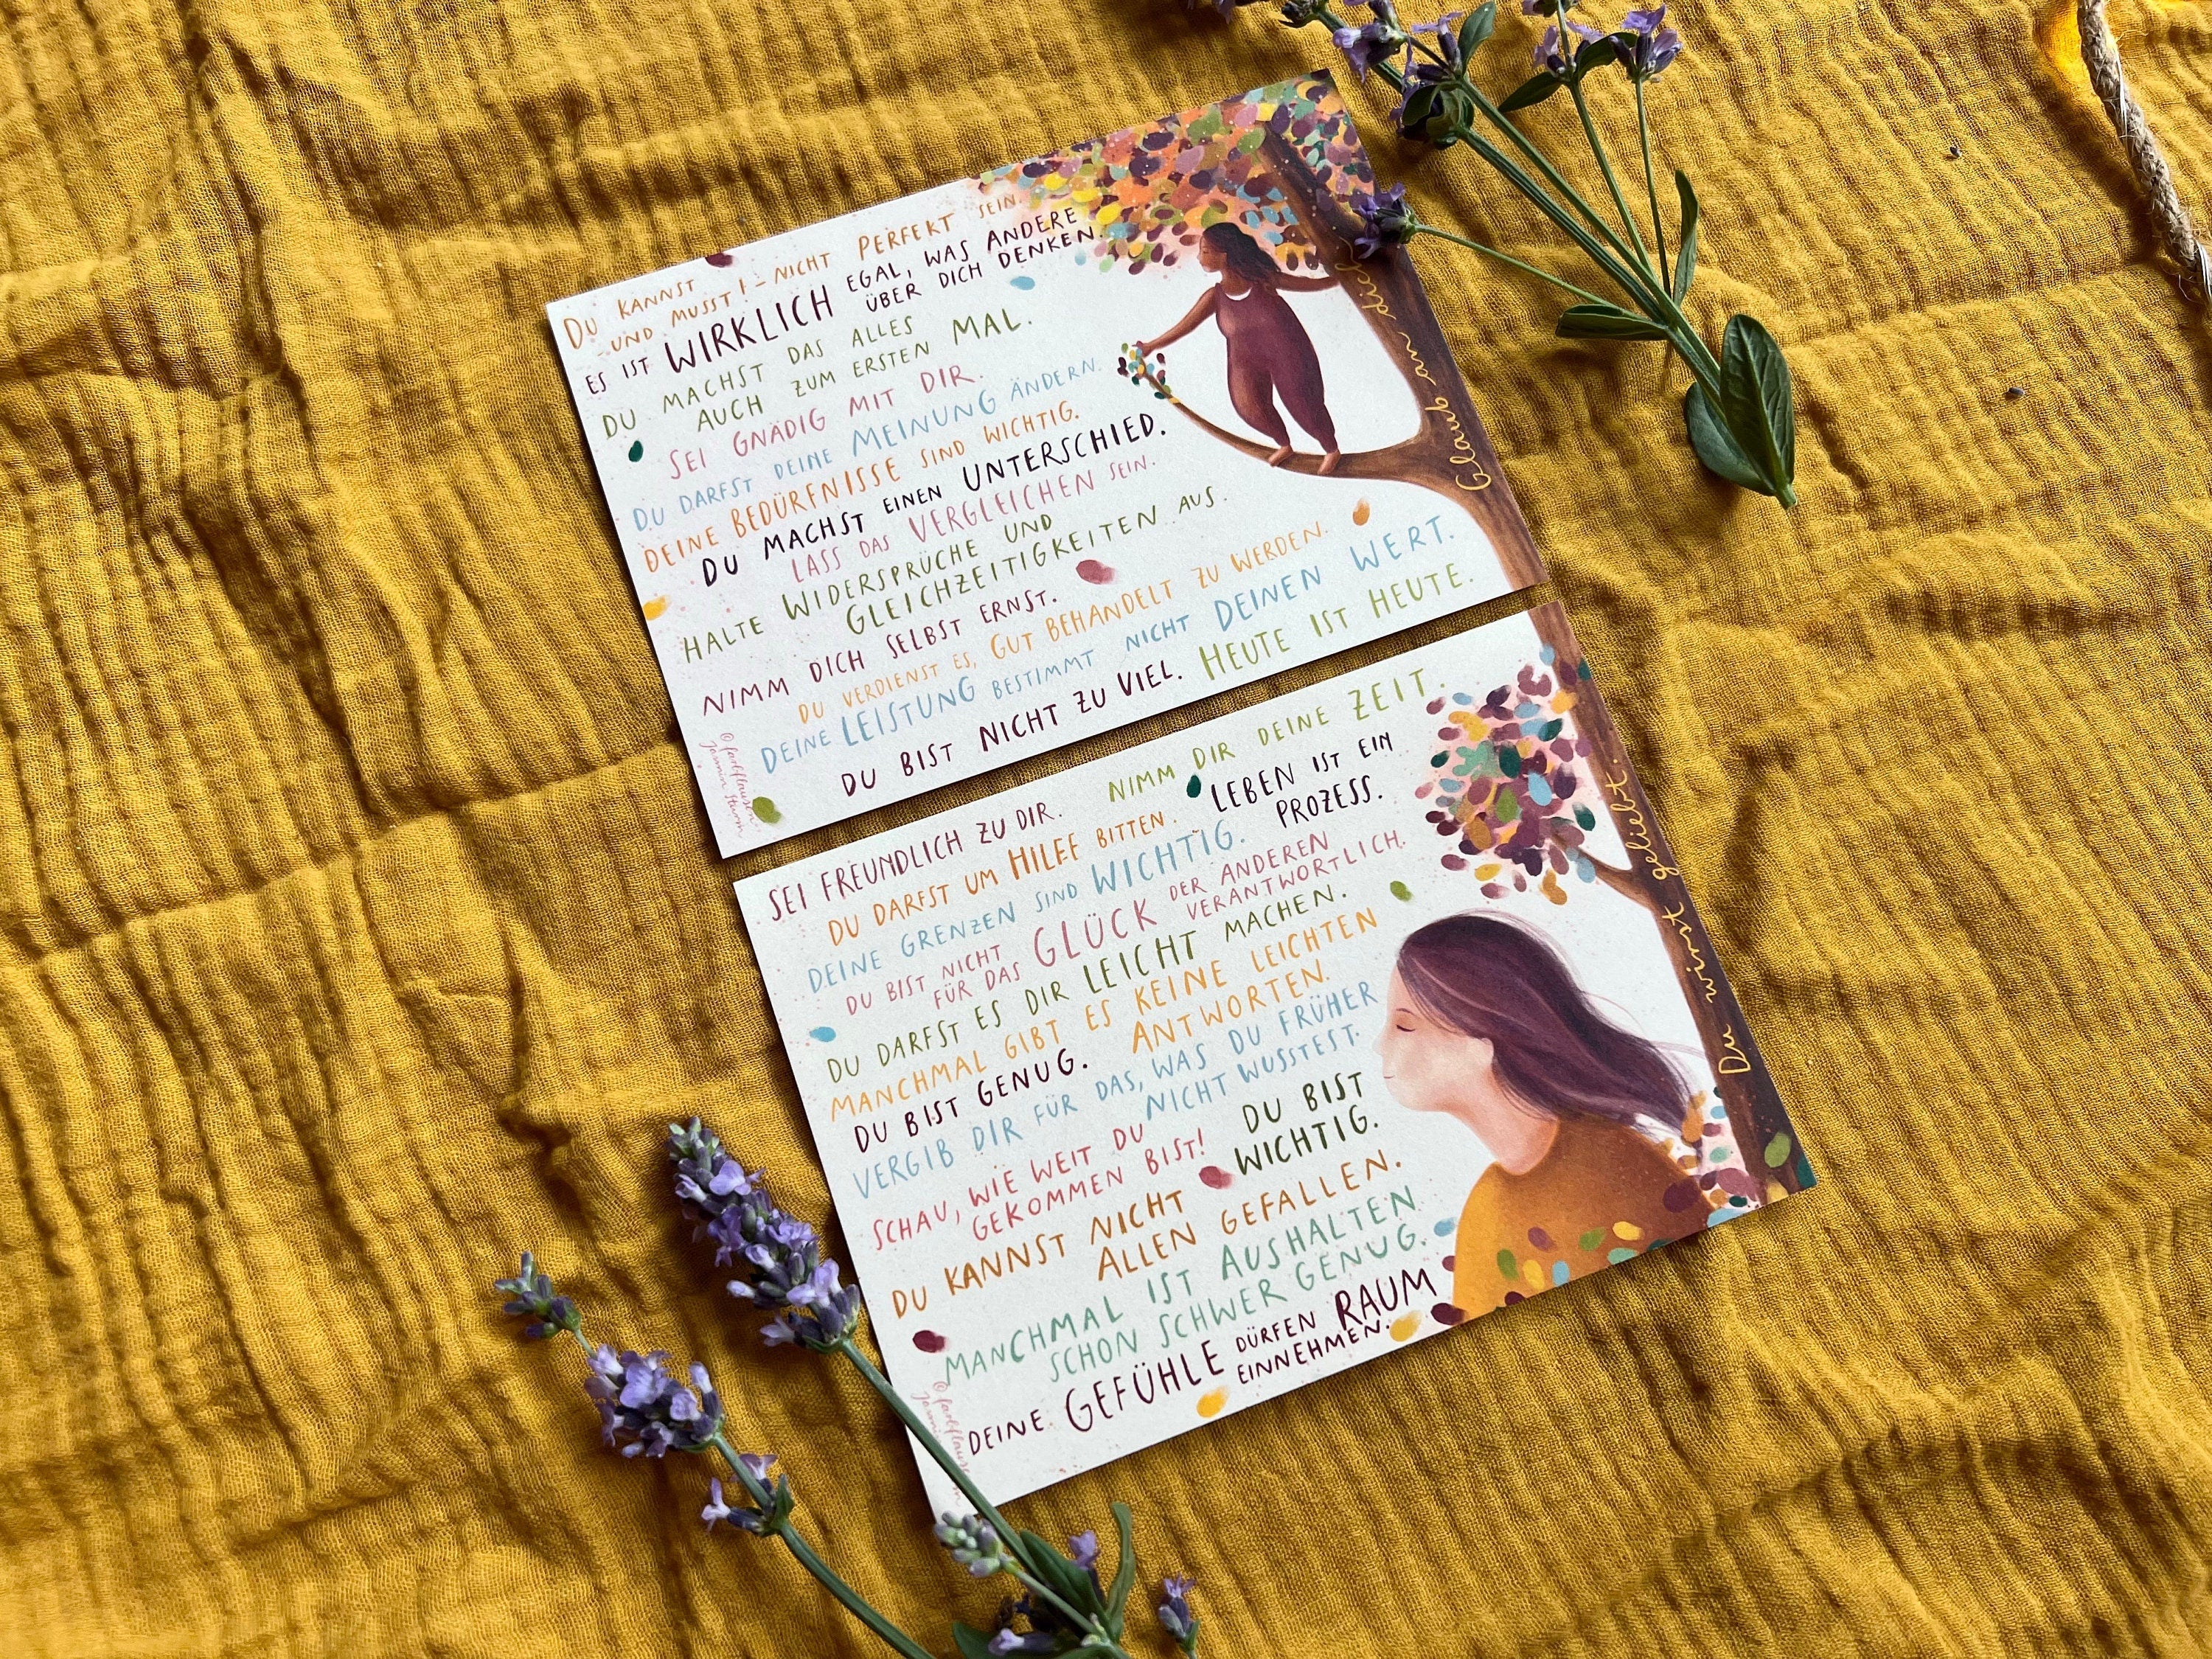 DU KANNST
- UND MUSST! - NICHT PERFEKT SEIN.
ES IST WIRKLICH EGAL, WAS ANDERE
ÜBER DICH DENKEN.
DU MACHST DAS ALLES
AUCH ZUM ERSTEN MAL.
SEI GNÄDIG MIT DIR.
DU DARFST DEINE MEINUNG ÄNDERN.
DEINE BEDÜRFNISSE SIND WICHTIG.
DU MACHST EINEN UNTERSCHIED.
LASS DAS VERGLEICHEN SEIN.
HALTE WIDERSPRÜCHE UND
GLEICHZEITIGKEITEN AUS.
NIMM DICH SELBST ERNST.
DU VERDIENST ES, GUT BEHANDELT ZU WERDEN.
DEINE LEISTUNG BESTIMMT NICHT DEINEN WERT.
DU BIST NICHT ZU VIEL. HEUTE IST HEUTE.
Glaub an dich
© farbflausen
Jasmin Sturm
SEI FREUNDLICH ZU DIR. NIMM DIR DEINE ZEIT.
DU DARFST UM HILFE BITTEN. LEBEN IST EIN
PROZESS.
DEINE GRENZEN SIND WICHTIG.
DU BIST NICHT
FÜR DAS GLÜCK DER ANDEREN
VERANTWORTLICH.
DU DARFST ES DIR LEICHT MACHEN.
MANCHMAL GIBT ES KEINE LEICHTEN
ANTWORTEN.
DU BIST GENUG.
VERGIB DIR FÜR DAS, WAS DU FRÜHER
NICHT WUSSTEST.
SCHAU, WIE WEIT DU
GEKOMMEN BIST!
DU BIST
WICHTIG.
DU KANNST NICHT
ALLEN GEFALLEN.
MANCHMAL IST AUSHALTEN
SCHON SCHWER GENUG.
DEINE GEFÜHLE DÜRFEN RAUM
EINNEHMEN.
Du wirst geliebt.
© farbflausen